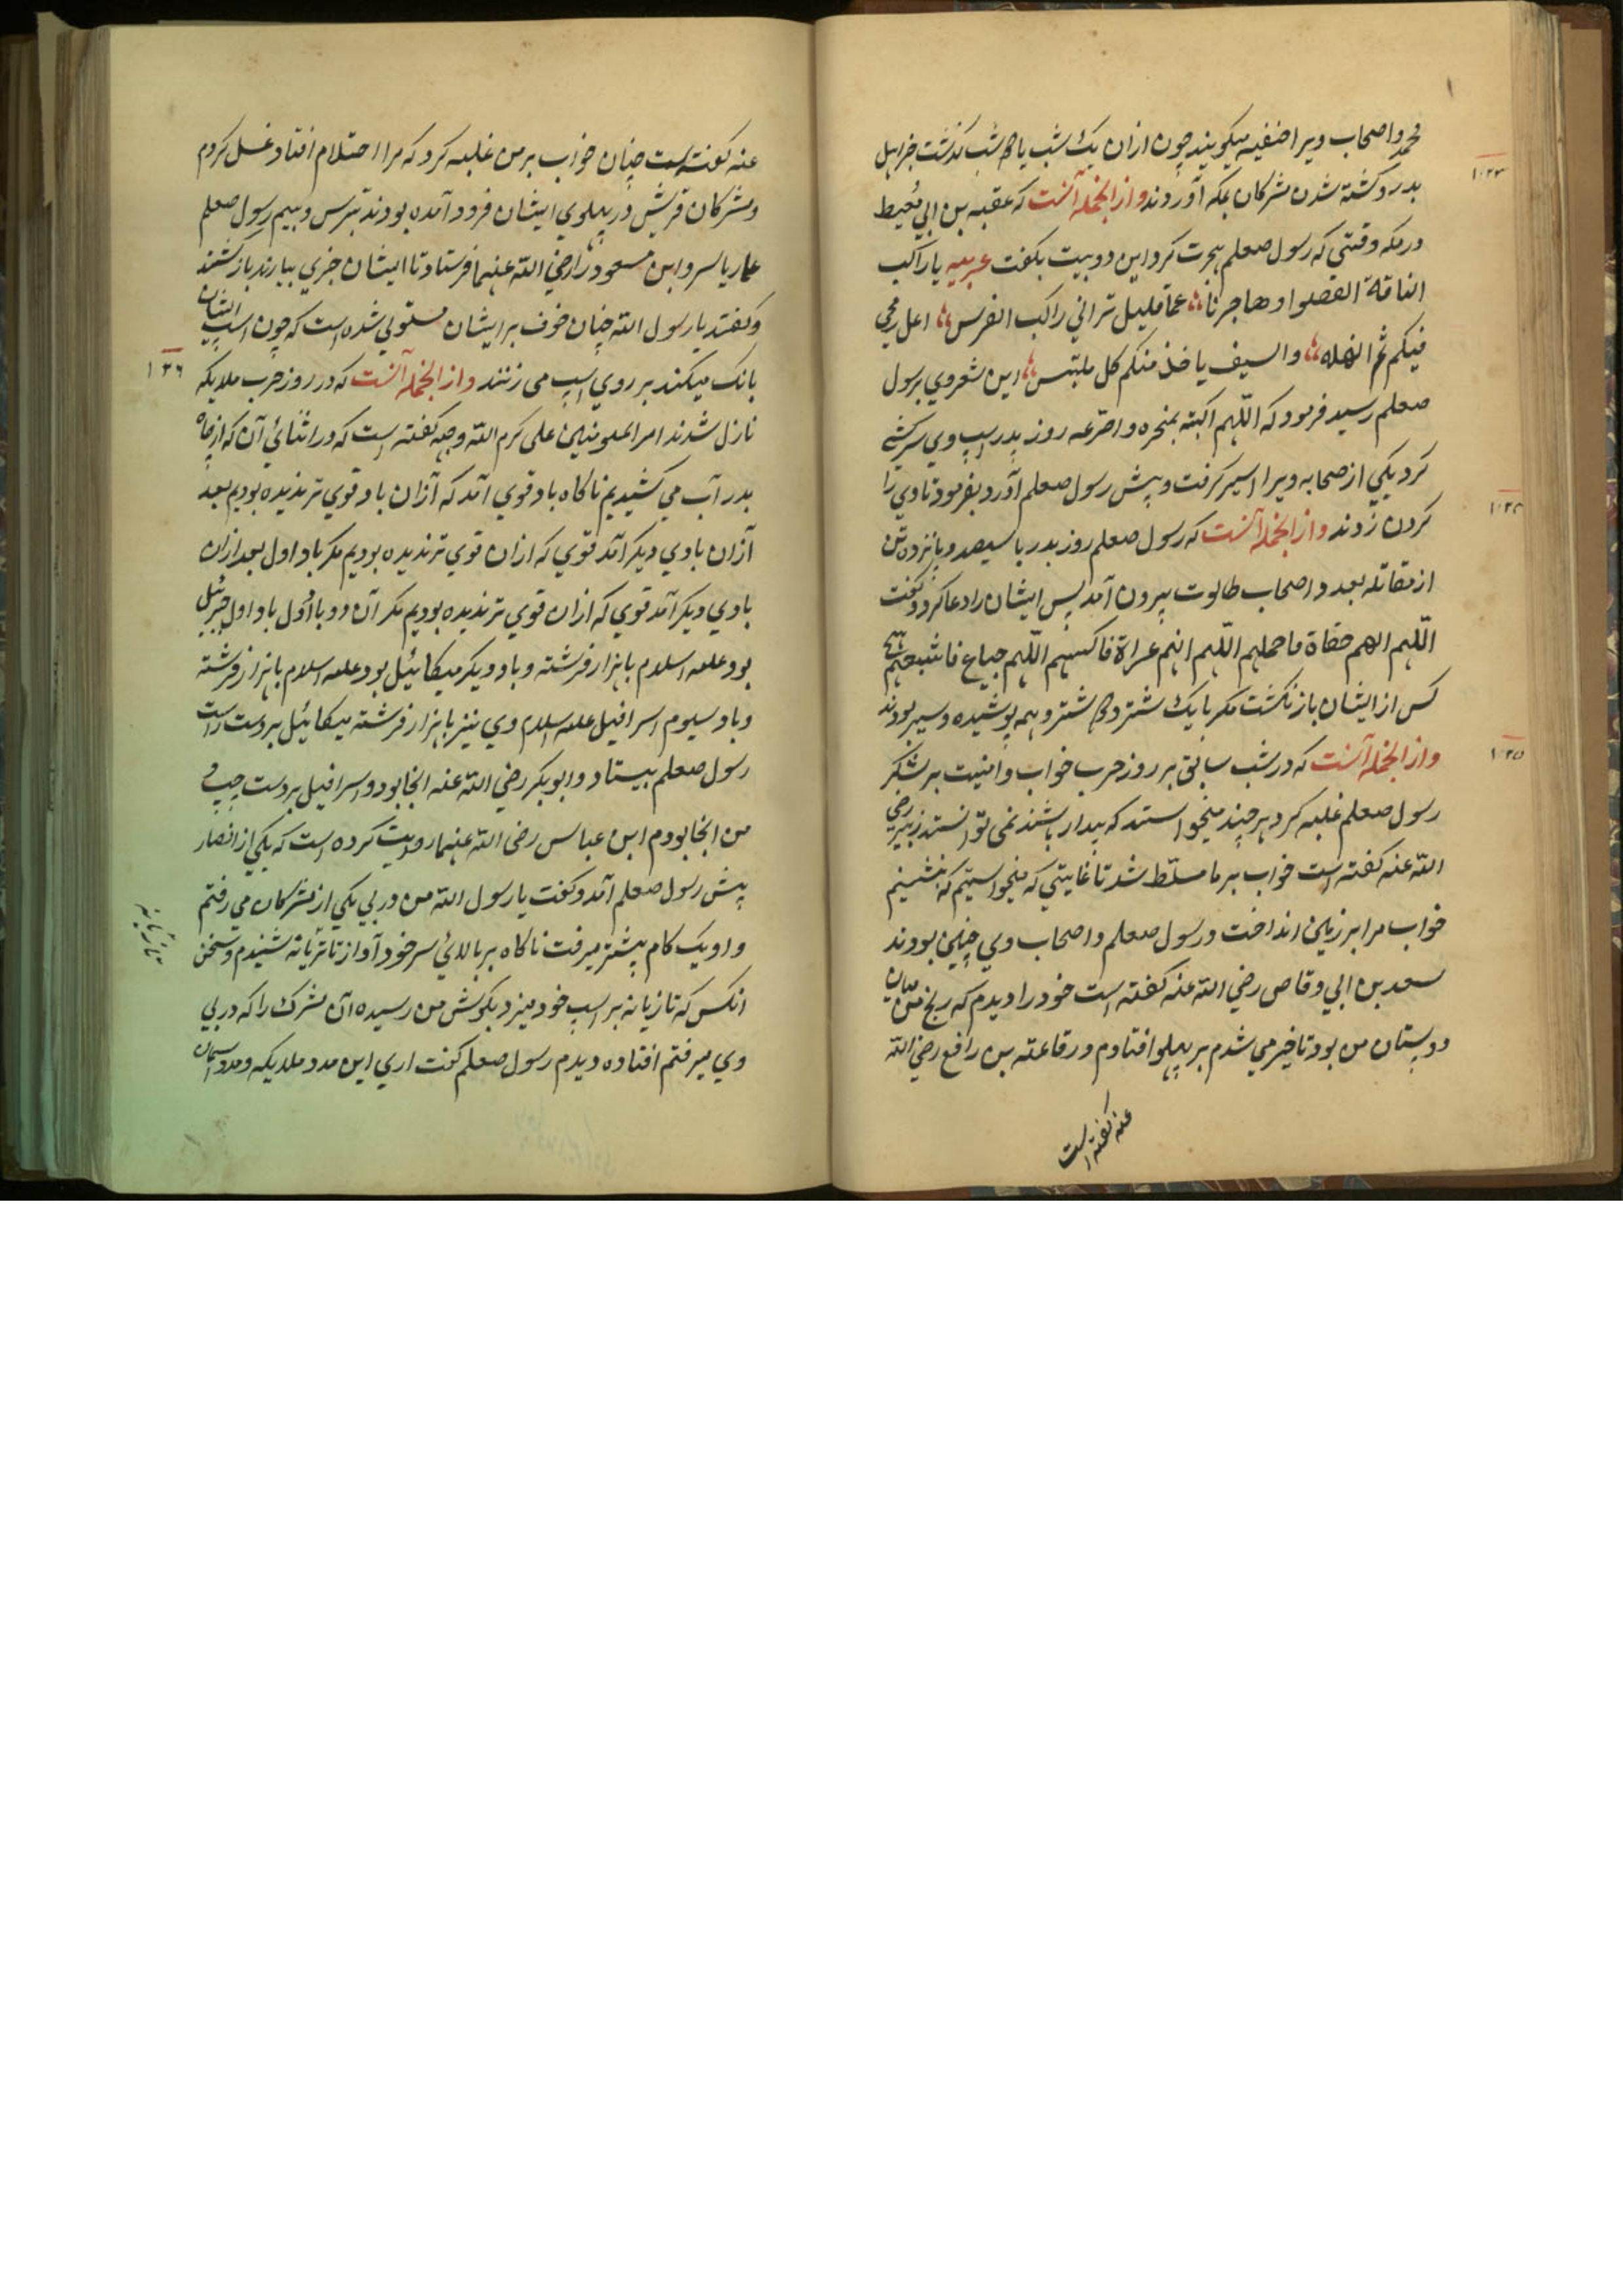 محمد و اصحاب ویرا حنفیه میکویند چون ازان یک شب یا دو شب کذشت خبر اهل
بدر و کشته شدن مشرکان بمکه آوردند واز انجمله آنست که عقبه بن ابی معیط
در مکه وقتی که رسول صعلم هجرت کرد این دو بیت بکفت عربیه یا راکب
الناقة القصوا و هاجرنا عما قلیل ترانی راکب الفرس اعل رمحی
فیکم ثم انهله والسیف یاخذ منکم کل ملتبس این شعر وی برسول
صعلم رسید فرمود که اللهم اکبه بمنخره واصرعه روز بدر اسپ وی سرکشی
کرد یکی از صحابه ویرا اسیر کرفت و پیش رسول صعلم آورد بفرمود تا وی را
کردن زدند واز انجمله آنست که رسول صعلم روز بدر با سیصد و پانزده تن
از مقاتله بعدد اصحاب طالوت بیرون آمد پس ایشان را دعا کرد و کفت
اللهم انهم حفاة فاحملهم اللهم انهم عراة فاکسهم اللهم جیاع فاشبعهم هیچ
کس از ایشان باز نکشت مکر با یک شتر و دو شتر و همه پوشیده و سیر بودند
واز انجمله آنست که در شب سابق بر روز حرب خواب و امنیت بر لشکر
رسول صعلم غلبه کرد هر چند میخواستند که بیدار باشند نمی توانستند زبیر رضی
الله عنه کفته است خواب بر ما مسلط شد تا غایتی که میخواستیم که بنشینیم
خواب مرا بر زمین انداخت و رسول صعلم و اصحاب وی چنین بودند
سعد بن ابی وقاص رضی الله عنه کفته است خود را دیدم که زنخ من میان
دو پستان من بود تا خبر می شدم بر پهلو افتادم و رفاعته بن رافع رضی الله
عنه کفته است
عنه کفته است چنان خواب بر من غلبه کرد که مرا احتلام افتاد و غسل کردم
و مشرکان قریش در پهلوی ایشان فرود آمده بودند بترس و بیم رسول صعلم
عمار یاسر و ابن مسعود را رضی الله عنهما فرستاد تا ایشان خبری بیارند باز کشتند
و کفتند یا رسول الله چنان خوف بر ایشان مستولی شده است که چون اسپ ایشان
بانک میکند بر روی اسپ می زنند واز انجمله آنست که در روز حرب ملایکه
نازل شدند امیر المومنین علی کرم الله وجهه کفته است که در اثنائی آن که از چاه
بدر آب می کشیدیم ناکاه باد قوی آمد که ازان باد قوی تر ندیده بودیم بعد
ازان بادی دیکر آمد قوی که ازان قوی تر ندیده بودیم مکر باد اول بعد ازان
بادی دیکر آمد قوی که ازان قوی تر ندیده بودیم مکر آن دو باد اول باد اول جبرئیل
بود علیه السلام با هزار فرشته و باد دیکر میکائیل بود علیه السلام با هزار فرشته
و باد سیوم اسرافیل علیه السلام وی نیز با هزار فرشته میکائیل بر دست راست
رسول صعلم بیستاد و ابوبکر رضی الله عنه انجا بود و اسرافیل بر دست چپ و
من انجا بودم ابن عباس رضی الله عنهما روایت کرده است که یکی از انصار
پیش رسول صعلم آمد و کفت یا رسول الله من در پی یکی از مشرکان می رفتم
و او یک کام پیشتر میرفت ناکاه بر بالائی سر خود آواز تازیانه شنیدم و سخن
انکس که تازیانه بر اسپ خود میزد بکوش من رسید آن مشرک را که در پی
وی میرفتم افتاده دیدم رسول صعلم کفت اری این مدد ملایکه و مدد آسمان